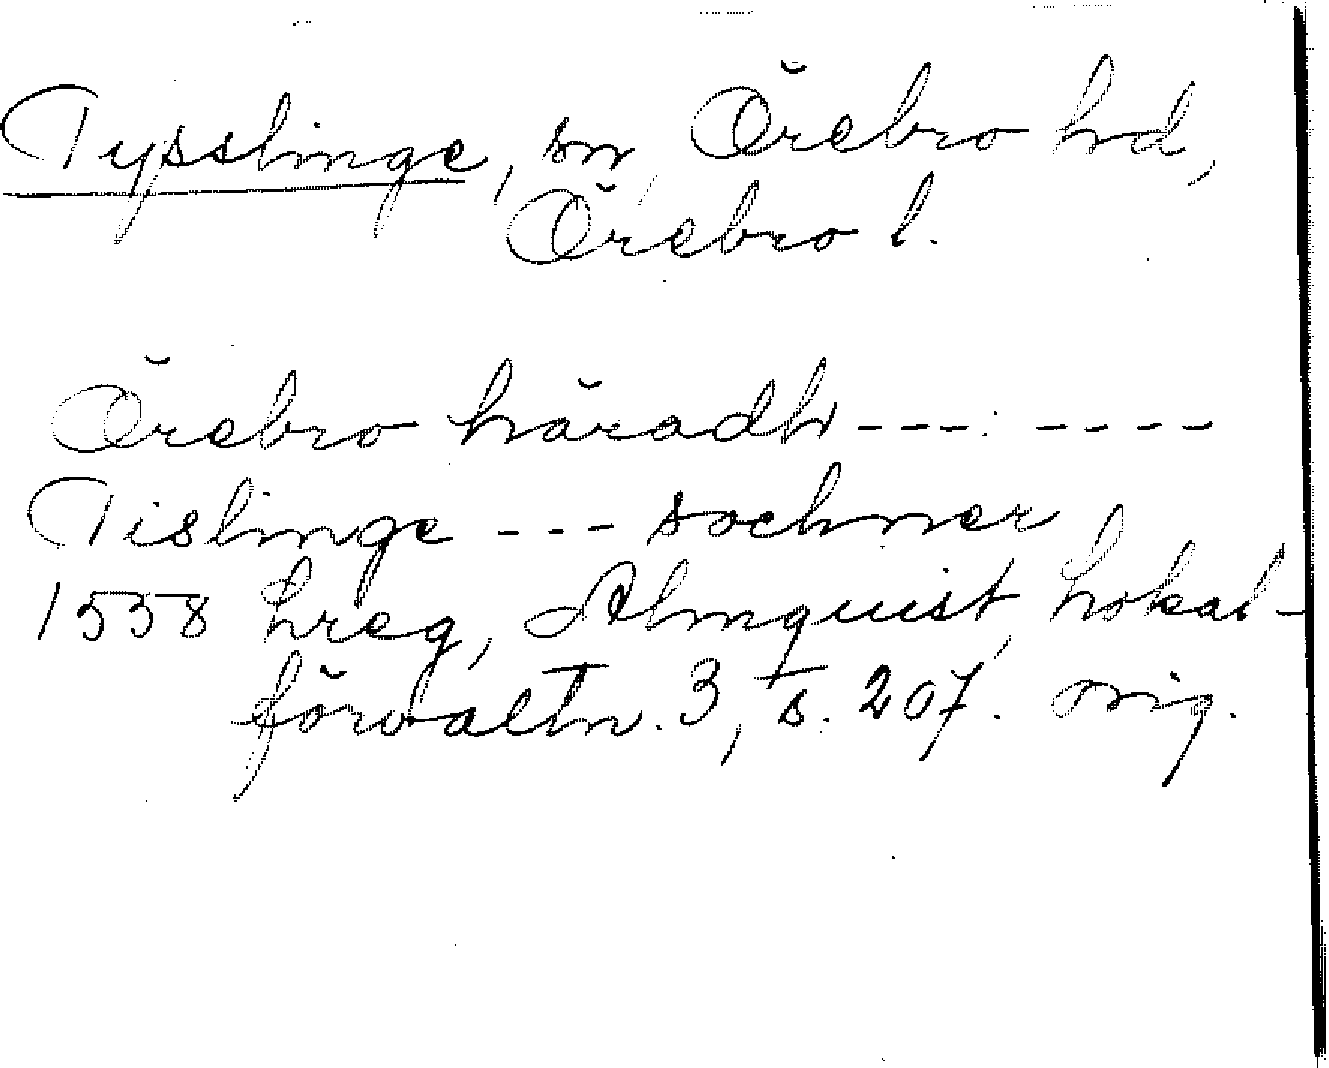 Tysslinge, sn, Örebro hd,
Örebro l.
Örebro häradh --- ----
Tislinge --- sochner
1558 Lreg, Almquist, Lokal-
förvaltn. 3, s. 207. orig.